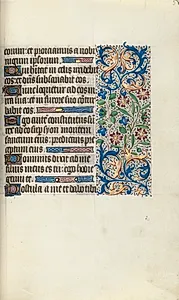 eorum: et proiciamus a nobis
iugum ipsorum.
Qui habitat in celis irridebit
eos: et dns subsannabit eos.
Tunc loquetur ad eos in
ira sua: et in furore suo contur
babit eos.
Ego autem constitutus su
rex ab eo super syon montem
sanctum eius: predicans pre
ceptum eius
Dominus dixit ad me
filius meus es tu: ego hodie
genui te.
Postula a me et dabo tibi